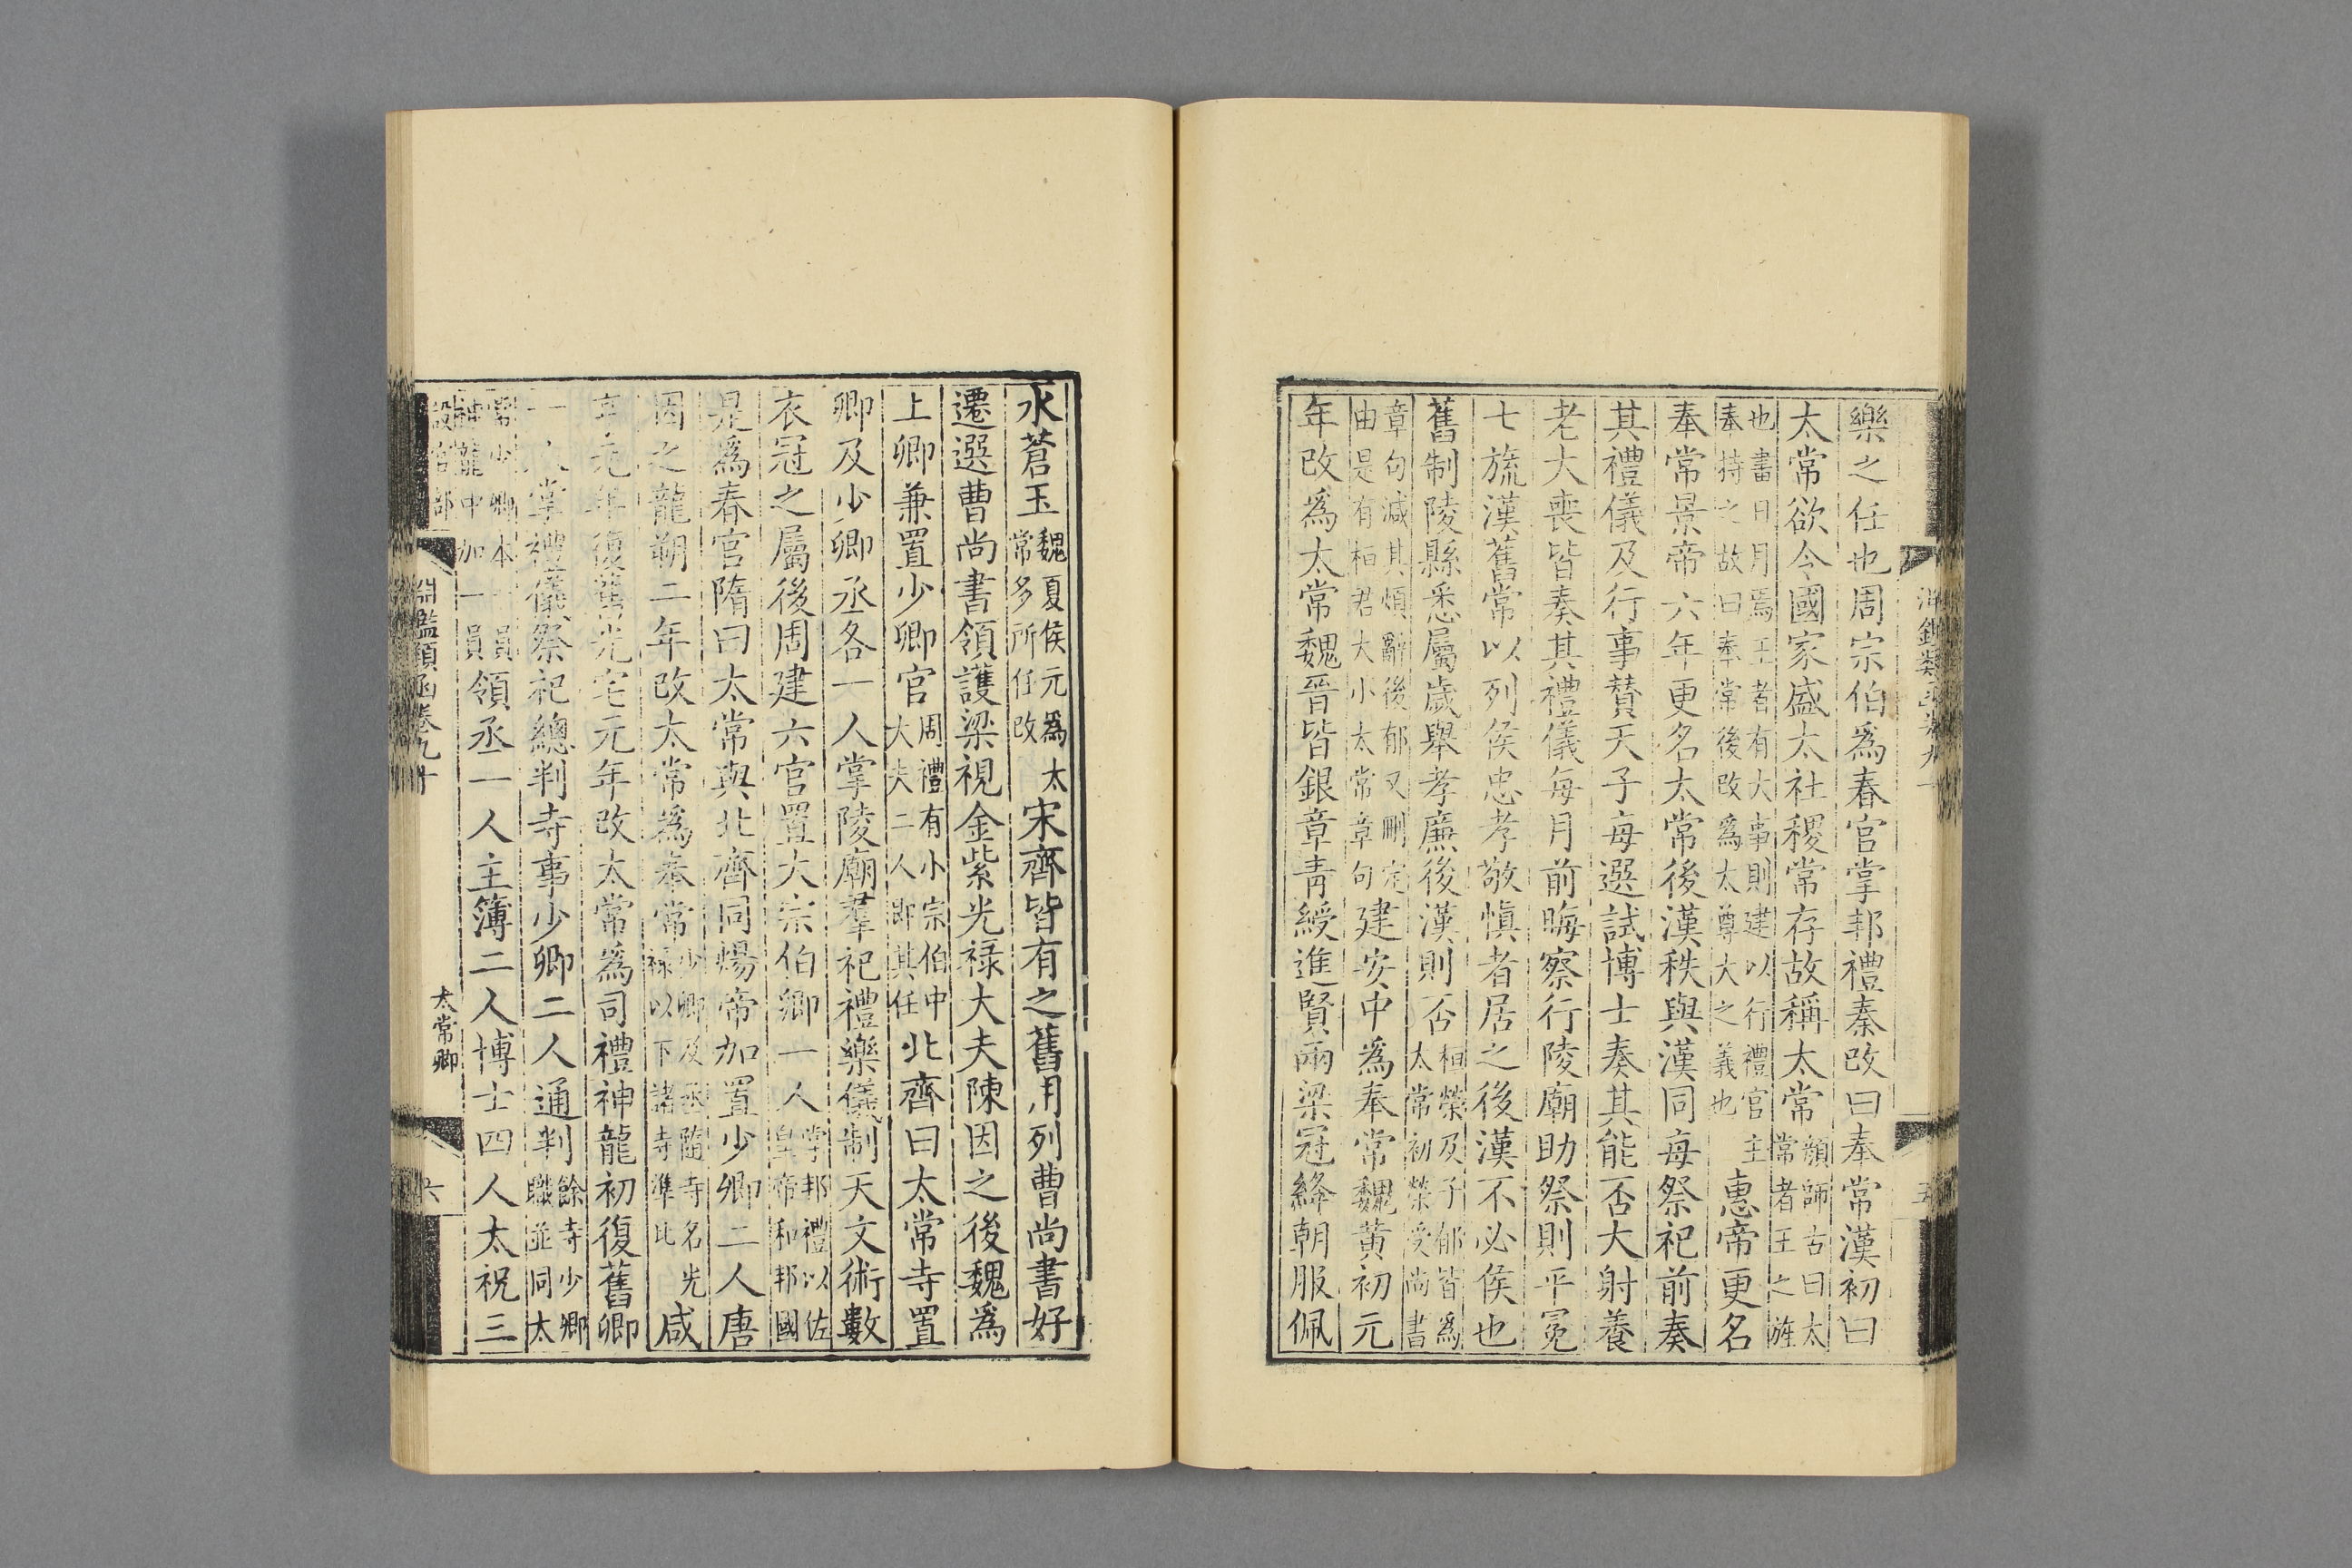 樂之任也周宗伯爲春官掌邦禮秦改曰奉常漢初曰
太常欲令國家盛太社稷常存故稱太常顔師古曰太常者王之旌
也畫日月焉王者有大事則建以行禮官主奉持之故曰奉常後改爲太尊大之義也惠帝更名
奉常景帝六年更名太常後漢秩與漢同每祭祀前奏
其禮儀及行事贊天子每選試博士奏其能否大射養
老大喪皆奏其禮儀每月前晦察行陵廟助祭則平冕
七旒漢舊常以列侯忠孝敬慎者居之後漢不必侯也
舊制陵縣悉屬歲舉孝廉後漢則否桓榮及子郁皆爲太常初榮受尚書
章句減其煩辭後郁又刪定由是有桓君大小太常章句建安中爲奉常魏黃初元
年改爲太常魏晉皆銀章靑綬進賢兩梁冠絳朝服佩
水蒼玉魏夏侯元爲太常多所任改宋齊皆有之舊用列曹尚書好
遷選曹尚書領護梁視金紫光祿大夫陳因之後魏爲
上卿兼置少卿官周禮有小宗伯中大夫二人即其任北齊曰太常寺置
卿及少卿丞各一人掌陵廟羣祀禮樂儀制天文術數
衣冠之屬後周建六官置大宗伯卿一人掌邦禮以佐皇帝和邦國
是爲春官隋曰太常與北齊同煬帝加置少卿二人唐
因之龍朔二年改太常爲奉常少卿及丞隨寺名光祿以下諸寺準此咸
亨元年復舊光宅元年改太常爲司禮神龍初復舊卿
一人掌禮儀祭祀總判寺事少卿二人通判餘寺少卿職並同太
常少卿本一員神龍中加一員領丞一人主簿二人博士四人太祝三
淵鑑類函卷九十
太常卿
六